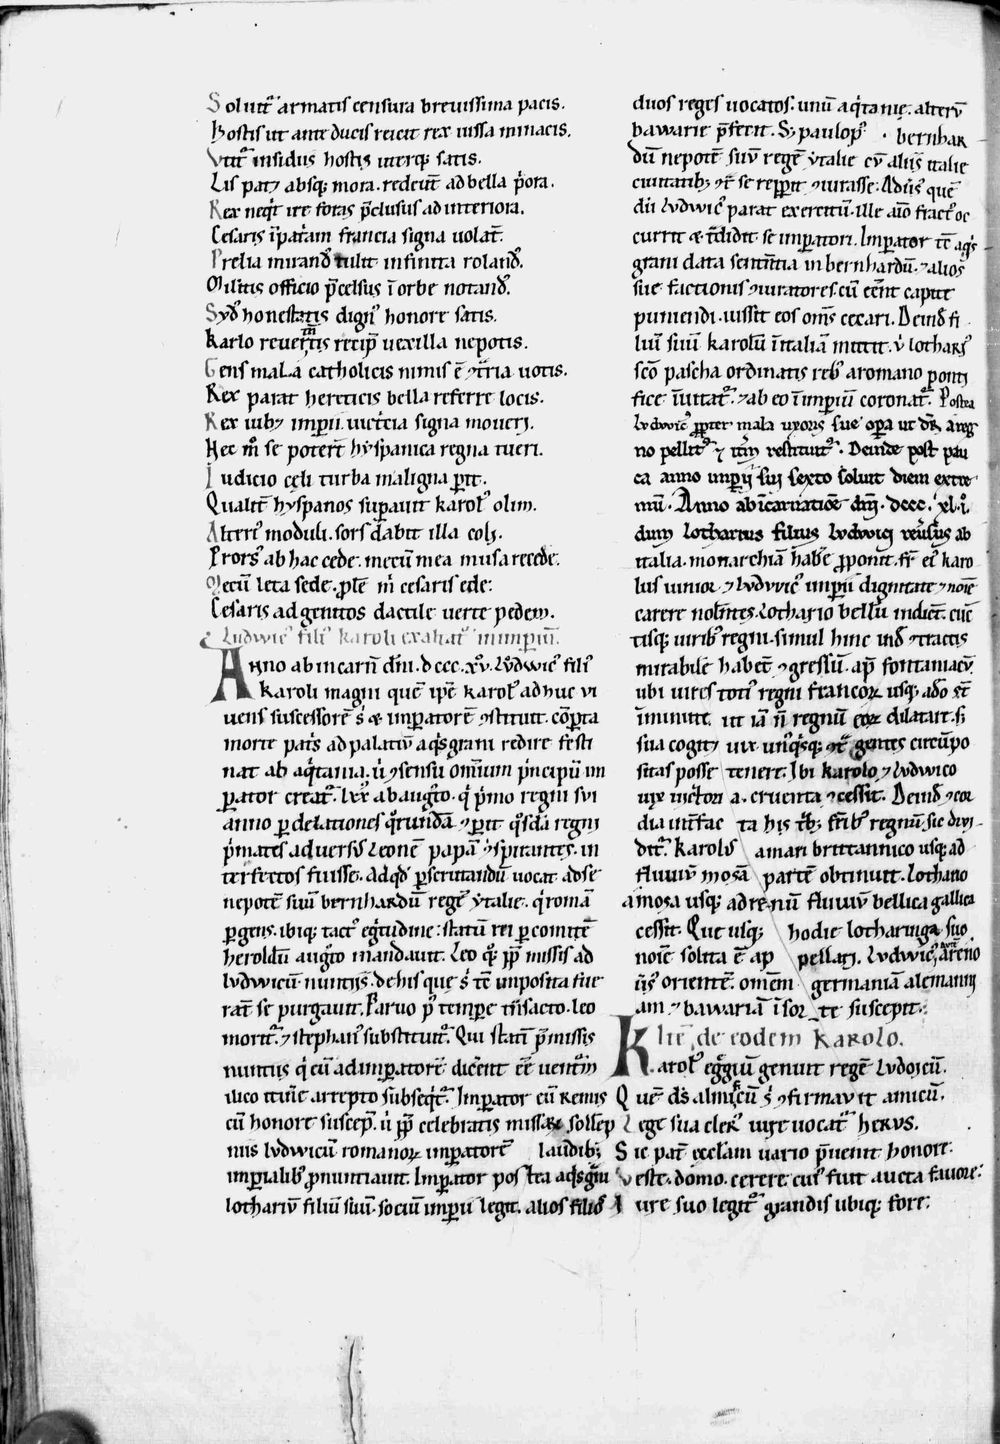 Soluit᷑ armatis censura breuissima pacis.
Hostis ut ante ducis reicit rex iussa minacis.
Vtit᷑ insidiis hostis uterq; satis.
Lis patꝫ absq; mora. redeut̄ ad bella p̄ora.
Rex neqt ire foras p̄clusus ad interiora.
Cesaris īpatam francia signa uolat̄.
Prelia mirand᷑ tulit infinita roland᷑.
Militis officio p̄celsus ī orbe notand᷑.
Syd᷑ honestatis dign᷑ honore satis.
Karlo reuertm̄tis recip̄ uexilla nepotis.
Gens mala catholicis nimis ē ɔtria uotis.
Rex parat hereticis bella referre locis.
Rex iubꝫ imperii. uictria signa moueri.
Hec m̄ se poterit hyspanica regna tueri.
Iudicio celi turba maligna p̄it.
Qualit̄ hyspanos sup̄auit karol᷑ olim.
Alteri᷑ moduli. sors dabit illa coli.
Prors᷑ ab hac cede. mecū mea musa recede.
Mecū leta sede. ple m̄ cesaris ede:
Cesaris ad genitos dactile uerte pedem.
Ludwic᷑ fili᷑ karoli exaltat᷑ in imperiū.
Anno ab incarn̄ dn̄i. dccc. xv. Ludwic᷑ fili᷑
karoli magni quē ip̄e karol᷑ adhuc vi
uens successorē s̄ & imperatorē ɔstituit. cōperta
morte patis ad palatiū aqsgrani redire festi
nat ab aqtania. ū ɔsensu omnium principū im
perator creat᷑. lxx. ab augto. q primo regni sui
anno per delationes qrundā. ɔperit qsdā regni
primates aduersus leonē papā ɔspirantes. in
terfectos fuisse. ad qd perscrutandū uocat ad se
nepotē suū bernhardū regē ytalie. q romā
pergens. ibiq; tact᷑ egritudine: statū rei per comitē
heroldū augto mandauit. Leo qq; pp̄ missis ad
ludwicū nuntiis. de his que s̄ t̄e imposita fue
rat̄ se purgauit. Paruo p᷑ tempe tn̄sacto. leo
morit᷑. ɔ stephan᷑ substituit᷑. Qui stati p̄missis
nuntiis q cū ad imperatorē dicent eē uentm̄
ilico itin̄e arrepto subseqt᷑. Imperator eū remis
cū honore suscep. ū pp̄ celebratis missarꝫ sollep
niis ludwicū romanorꝫ imperatorē laudibꝫ
imperialib᷑ pronuntiauit. Imperator postea aqsgrani
lothariū filiū suū. sociū imperii legit. alios filios
duos reges uocatos. unū aqtanie. alterū
bawarie p̄fecit. Sꝫ paulo p᷑. bernhar
dū nepotē suū regē ytalie cū aliis italie
ciuitatibꝫ ɔt se rep̄pit ɔiurasse. Aduersus quē
dū ludwic᷑ parat exercitū. ille aīo fract᷑ oc
currit & t̄didit se imperatori. Imperator t̄e aqs
grani data sententia in bernhardū. ɔ alios
sue factionis ɔiuratores. cū eēnt capite
puniendi. iussit eos om̄s cecari. Deind᷑ fi
liū suū karolū in italiā mittit. ū lothari᷑
scō pascha ordinatis reb᷑ a romano ponti
fice inuitat᷑. ɔ ab eo in imperiū coronat᷑. Postea
ludwic᷑ propter mala uxoris sue opera ut dr̄ a reg
no pellit᷑ ɔ iterum restituit᷑. Deinde post pau
ca anno imperii sui sexto soluit diem extre
mū. Anno ab incarnatiōe dn̄i. dccc. xl. i.
dum lotharius filius ludwici reuersus ab
italia. monarchiā habere proponit. fr̄ ei᷑ karo
lus iunior ɔ ludwic᷑ imperii dignitate ɔ noīe
carere nolentes. lothario bellū indicē. cūc
tisq; uirib᷑ regni. simul hinc ind᷑ ɔtractis
mirabile habet ɔgressū. ap̄ fontaniacū.
ubi uires toti᷑ regni francorꝫ usq; ado st̄
imminute. ut iā n̄ regnū eorꝫ dilatare. sꝫ
sua cogitꝫ uix unqsq; ɔt gentes circūpo
sitas posse tenere. Ibi karolo ɔ ludwico
uix uictoria. cruenta ɔcessit. Deind᷑ ɔcor
dia interfacta his tribꝫ frīb᷑ regnū sic diui
dit᷑. Karolus a mari brittannico usq; ad
fluuiū mosā partē obtinuit. lothario
a mosa usq; ad renū fluuiū bellica gallica
cessit. Que usq; hodie lotharinga suo
noīe solita ē appellari. Ludwic᷑ aut̄ a reno
ūs᷑ orientē. omēm germaniā alemanni
am ɔ bawariā in sorte suscepit.
Itē de eodem karolo.
Karol᷑ egregiū genuit regē ludoicū.
Quē ds̄ almificū s̄ ɔfirmauit amicū.
Lege sua cleri᷑ uixe uocat᷑ herus.
Sic pat̄ ecclam uario p̄uenit honore
Veste. domo. cerere cui᷑ fuit aucta fauore:
Iure suo legit᷑ grandis ubiq; fore.